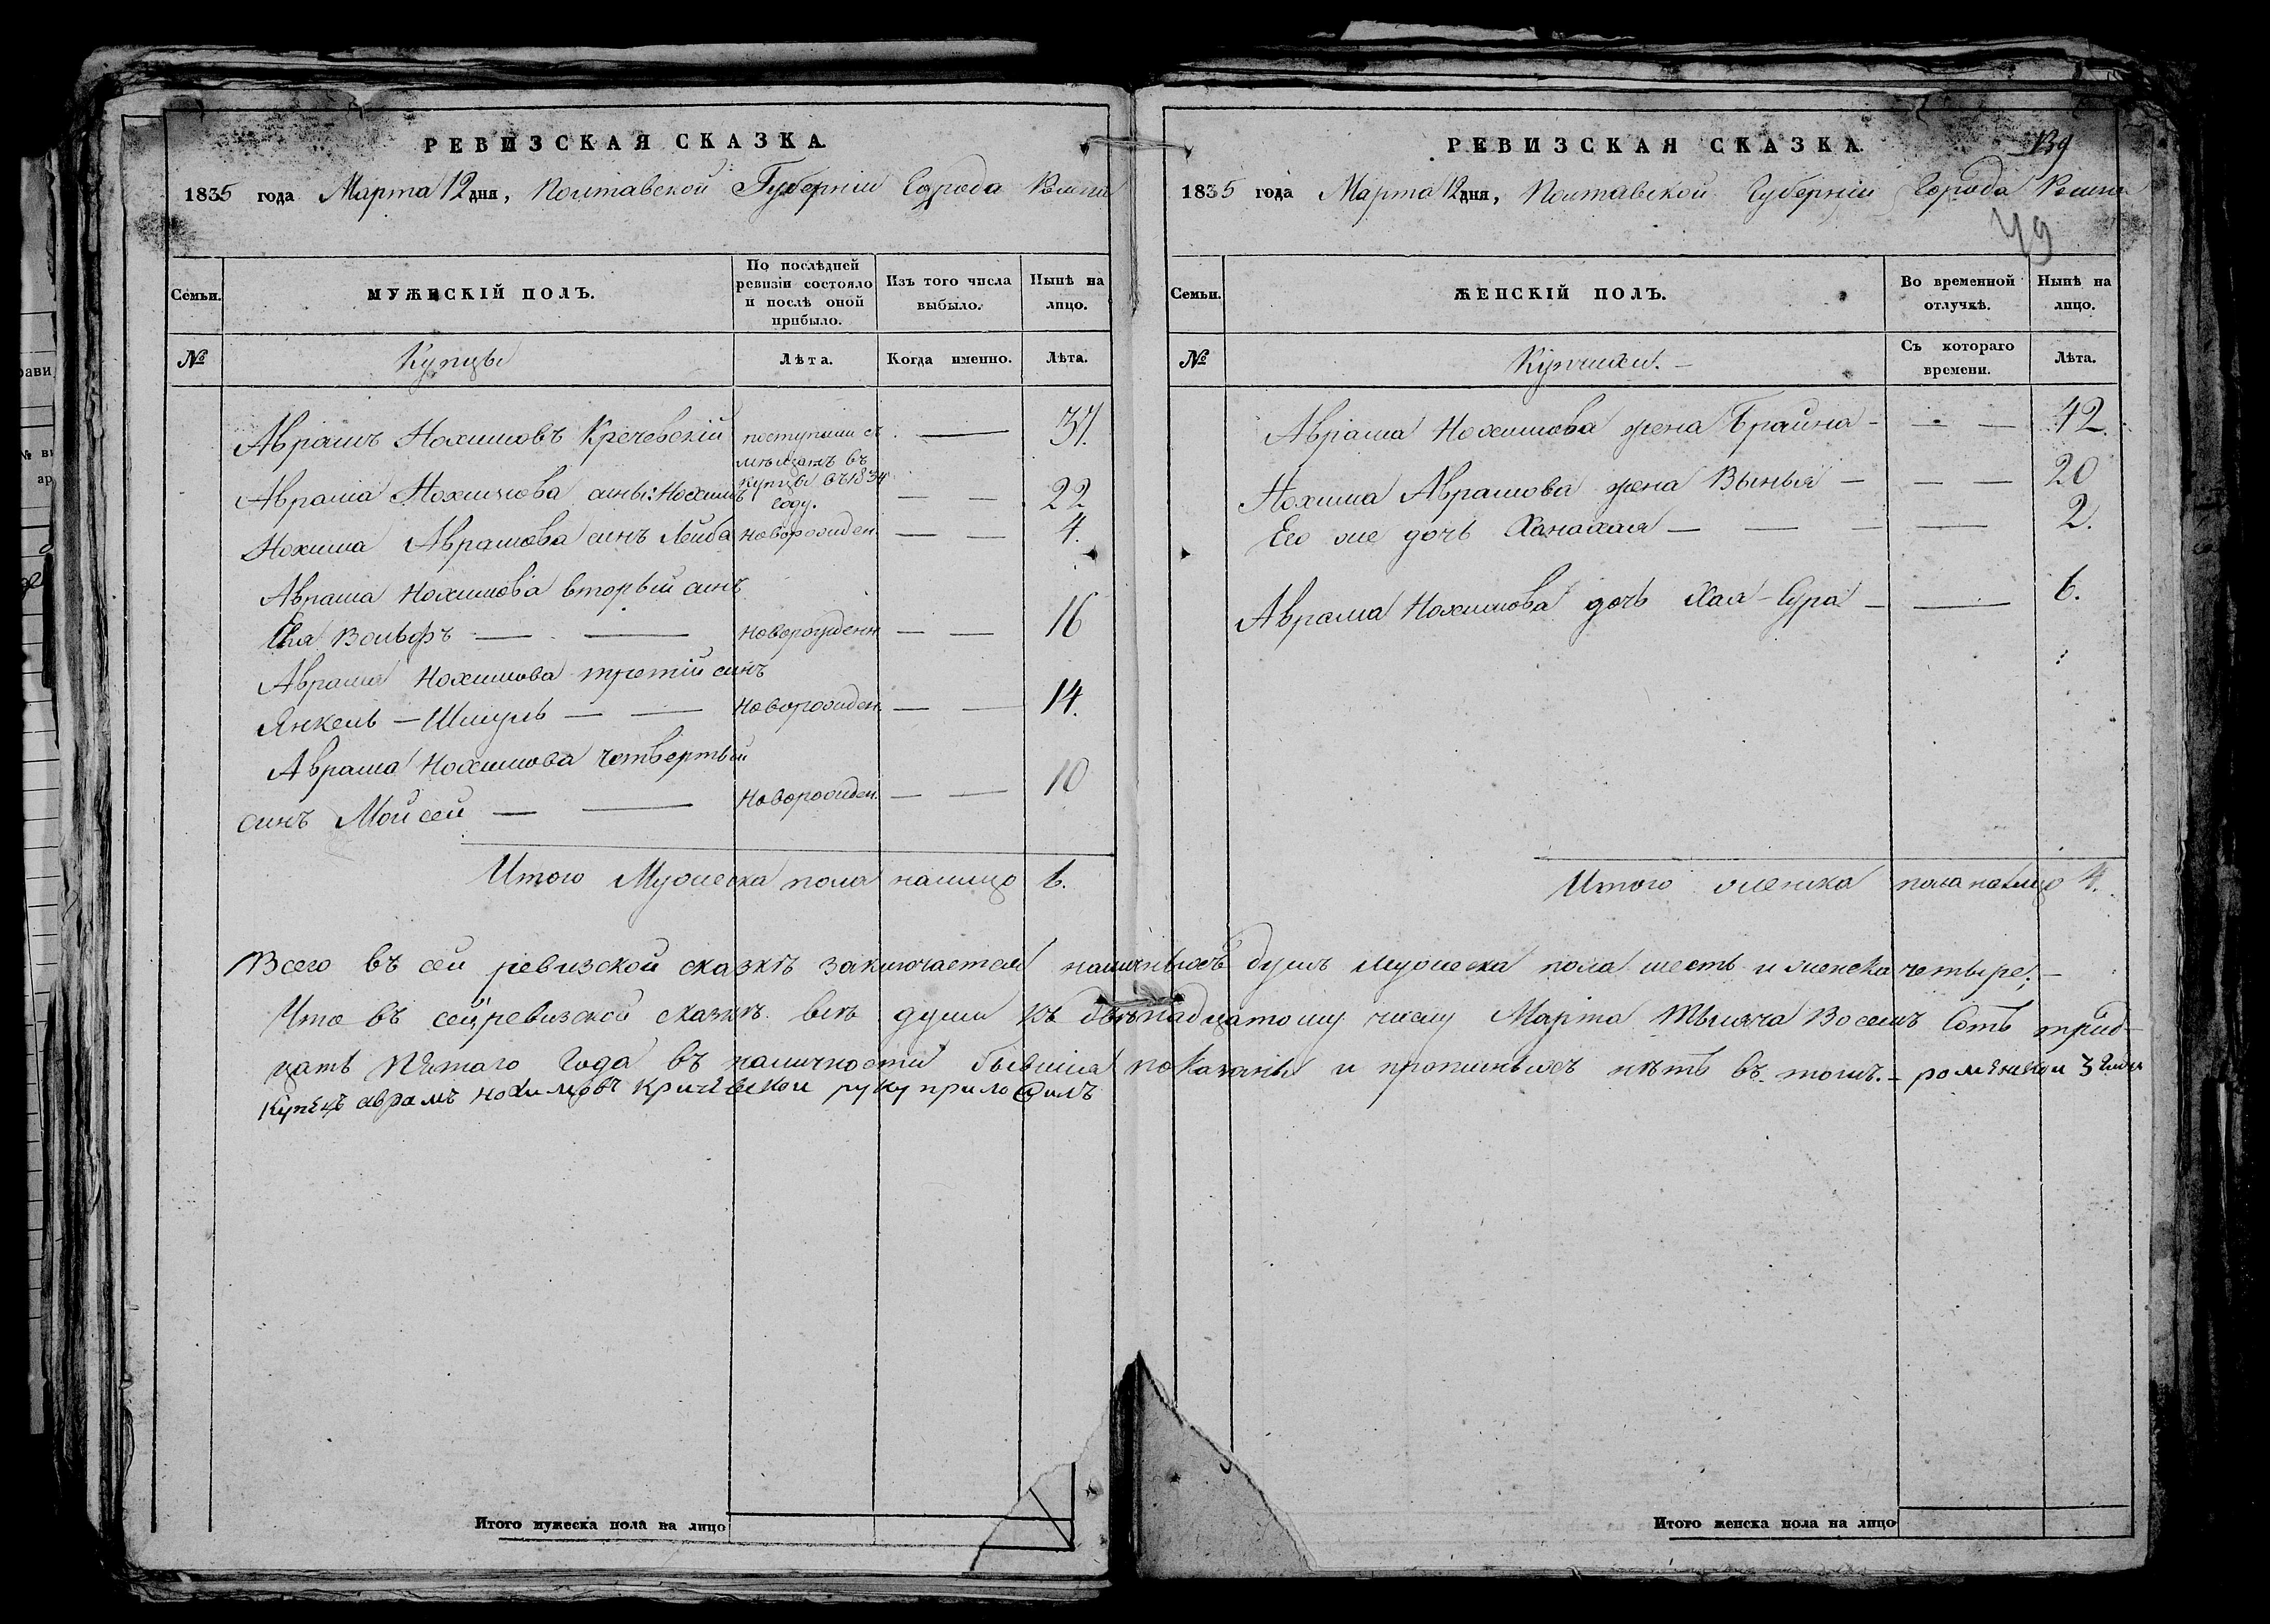 РЕВИЗСКАЯ СКАЗКА.
1835 года Марта 12 дня, Полтавской Губерніи Города Ромна
Семьи. МУЖЕСКІЙ ПОЛЪ. По послѣдней ревизіи состояло и послѣ оной прибыло. Изъ того числа выбыло. Нынѣ на лицо.
№ Купцы Лѣта. Когда именно. Лѣта.
Аврамъ Нохимовъ Кречевскій поступили съ мѣщанъ въ купцы въ 1834 году. — 37.
Аврама Нохимова сынъ: Нохимъ — — 22
Нохима Аврамова синъ Лейба новорожден. — — 4.
Аврама Нохимова вторый синъ
Вольфъ — — новорожденн — — 16
Аврама Нохимова третій синъ
Янкель — Шмуль — — новорожден. — — 14.
Аврама Нохимова четвертый
синъ Мойсей — — Новорожден. — — 10
Итого Мужеска пола налицо 6.
РЕВИЗСКАЯ СКАЗКА.
139
1835 года Марта 12 дня, Полтавской Губерніи Города Ромна
49
Семьи. ЖЕНСКІЙ ПОЛЪ. Во временной отлучкѣ. Нынѣ на лицо.
№ Купчихи. — Съ котораго времени. Лѣта.
Аврама Нохимова жена Брайна — — — 42.
Нохима Аврамова жена Вынья — — — 20
Его же дочь Ханахая — — — — 2.
Аврама Нохимова дочь Хая-Сура — — 6.
Итого женска пола налицо 4.
Всего въ сей ревизской сказкѣ заключается наличныхъ душъ мужеска пола шесть и женска четыре; —
Что въ сей ревизской сказкѣ всѣ души къ двѣнадцатому числу Марта тысяча восемъ сотъ трид-
цать пятаго Года въ наличности бывшіа показаны и прописныхъ нѣтъ въ томъ. — роменской 3
купецъ аврамъ нохимовъ кричевской руку приложилъ
Итого мужеска пола на лицо
Итого женска пола на лицо